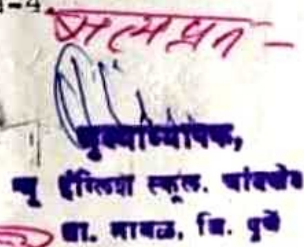 -4.
सत्यप्रत -
मुख्याध्यापक,
न्यू इंग्लिश स्कूल. चांदखेड
ता. मावळ, जि. पुणे